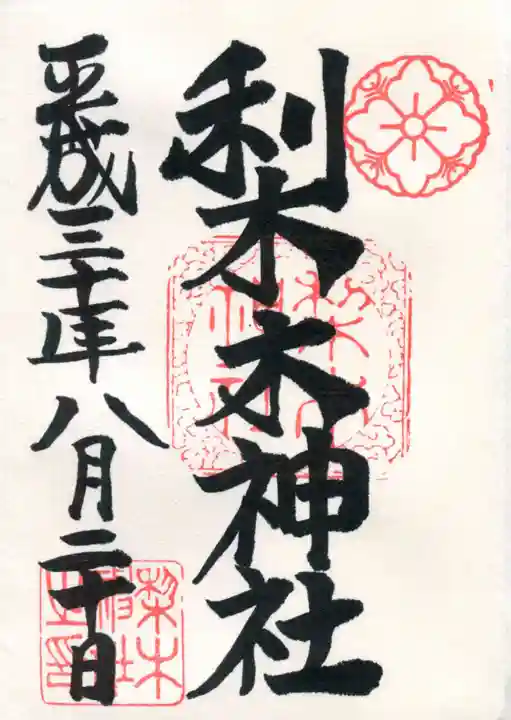 梨木神社
平成三十年八月二十日
梨木神社之印